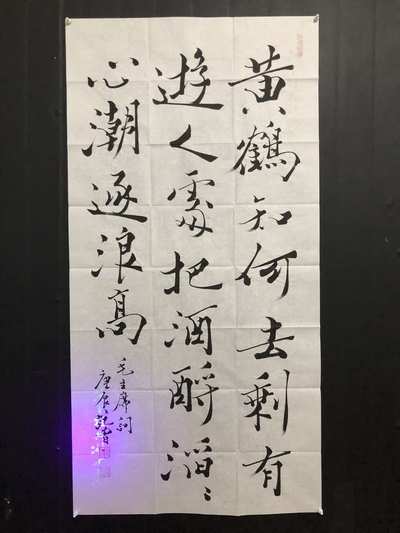 黄鶴知何去剩有
遊人處把酒酹滔〻
心潮逐浪高
毛主席詞